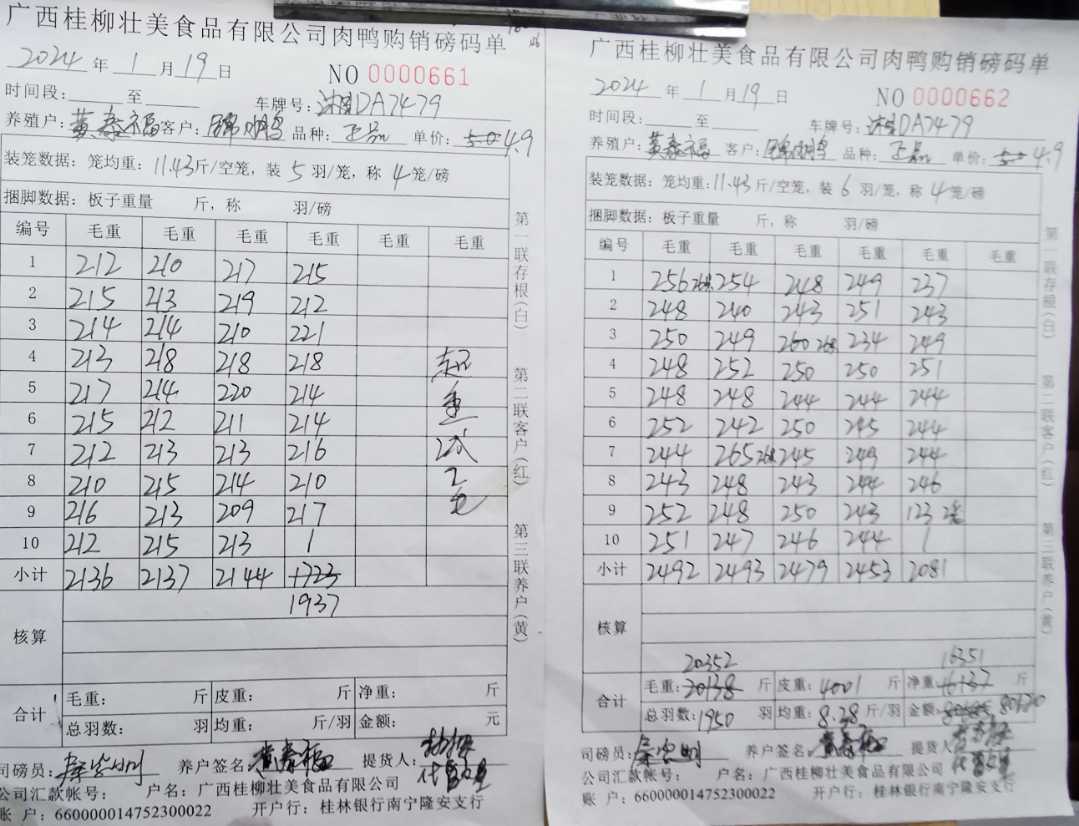 广西桂柳壮美食品有限公司肉鸭购销磅码单
2024 年 1 月 19 日 NO 0000661
时间段: 至 车牌号: DA7479
养殖户: 黄春福 客户: 品种: 正品 单价: 5.0 4.9
装笼数据: 笼均重: 11.43 斤/空笼, 装 5 羽/笼, 称 4 笼/磅
捆脚数据: 板子重量 斤, 称 羽/磅
编号 毛重 毛重 毛重 毛重 毛重 毛重
1 212 210 217 215
2 215 213 219 212
3 214 214 210 221
4 213 218 218 218
5 217 214 220 214
6 215 212 211 214
7 212 213 213 216
8 210 215 214 210
9 216 213 209 217
10 212 215 213 /
小计 2136 2137 2144 1723
1937
核算
合计 毛重: 斤 皮重: 斤 净重: 斤
总羽数: 羽 均重: 斤/羽 金额: 元
司磅员: 养户签名: 黄春福 提货人:
公司汇款帐号: 户名: 广西桂柳壮美食品有限公司
账 户: 660000014752300022 开户行: 桂林银行南宁隆安支行
第一联存根(白) 第二联客户(红) 第三联养户(黄)
广西桂柳壮美食品有限公司肉鸭购销磅码单
2024 年 1 月 19 日 NO 0000662
时间段: 至 车牌号: DA7479
养殖户: 黄春福 客户: 品种: 正品 单价: 5.0 4.9
装笼数据: 笼均重: 11.43 斤/空笼, 装 6 羽/笼, 称 4 笼/磅
捆脚数据: 板子重量 斤, 称 羽/磅
编号 毛重 毛重 毛重 毛重 毛重 毛重
1 256 254 248 249 237
2 248 240 243 251 243
3 250 249 260 234 249
4 248 252 250 250 251
5 248 248 244 244 244
6 252 242 250 245 244
7 244 265 245 249 244
8 243 248 243 244 246
9 252 248 250 243 123
10 251 247 246 244 /
小计 2492 2493 2479 2453 2081
核算
20352 16351
合计 毛重: 20138 斤 皮重: 4001 斤 净重: 16137 斤
总羽数: 1950 羽 均重: 8.38 斤/羽 金额:
司磅员: 养户签名: 黄春福 提货人:
公司汇款帐号: 户名: 广西桂柳壮美食品有限公司
账 户: 660000014752300022 开户行: 桂林银行南宁隆安支行
第一联存根(白) 第二联客户(红) 第三联养户(黄)